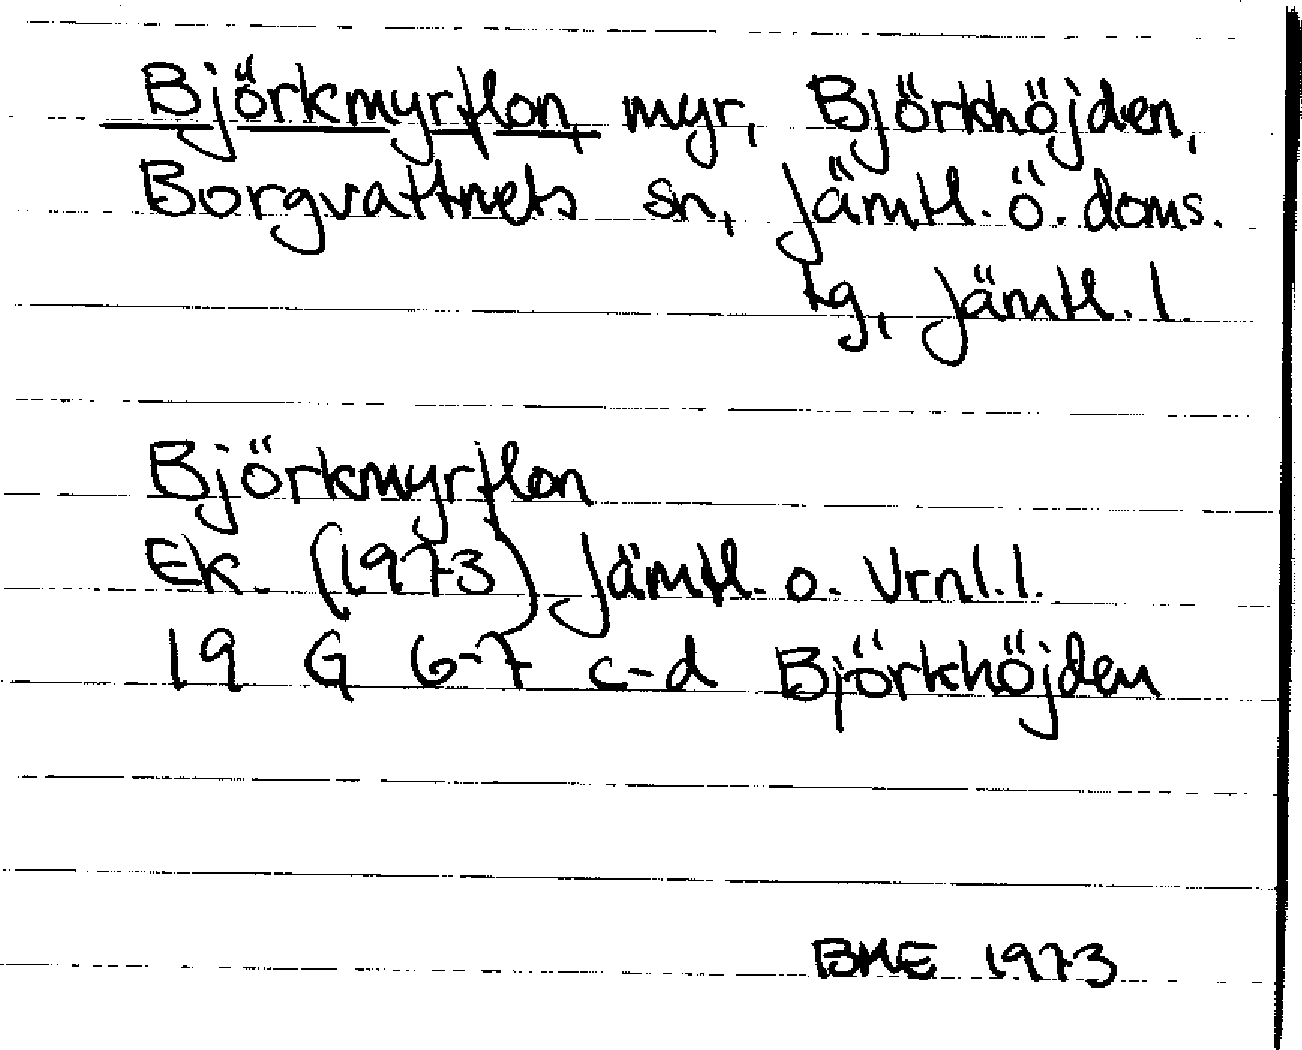 Björkmyrflon, myr, Björkhöjden,
Borgvattnets sn, Jämtl. ö. doms.
tg, Jämtl. l.
Björkmyrflon
Ek. (1973) Jämtl. o. Vrnl. l.
19 G 6-7 c-d Björkhöjden
BME 1973